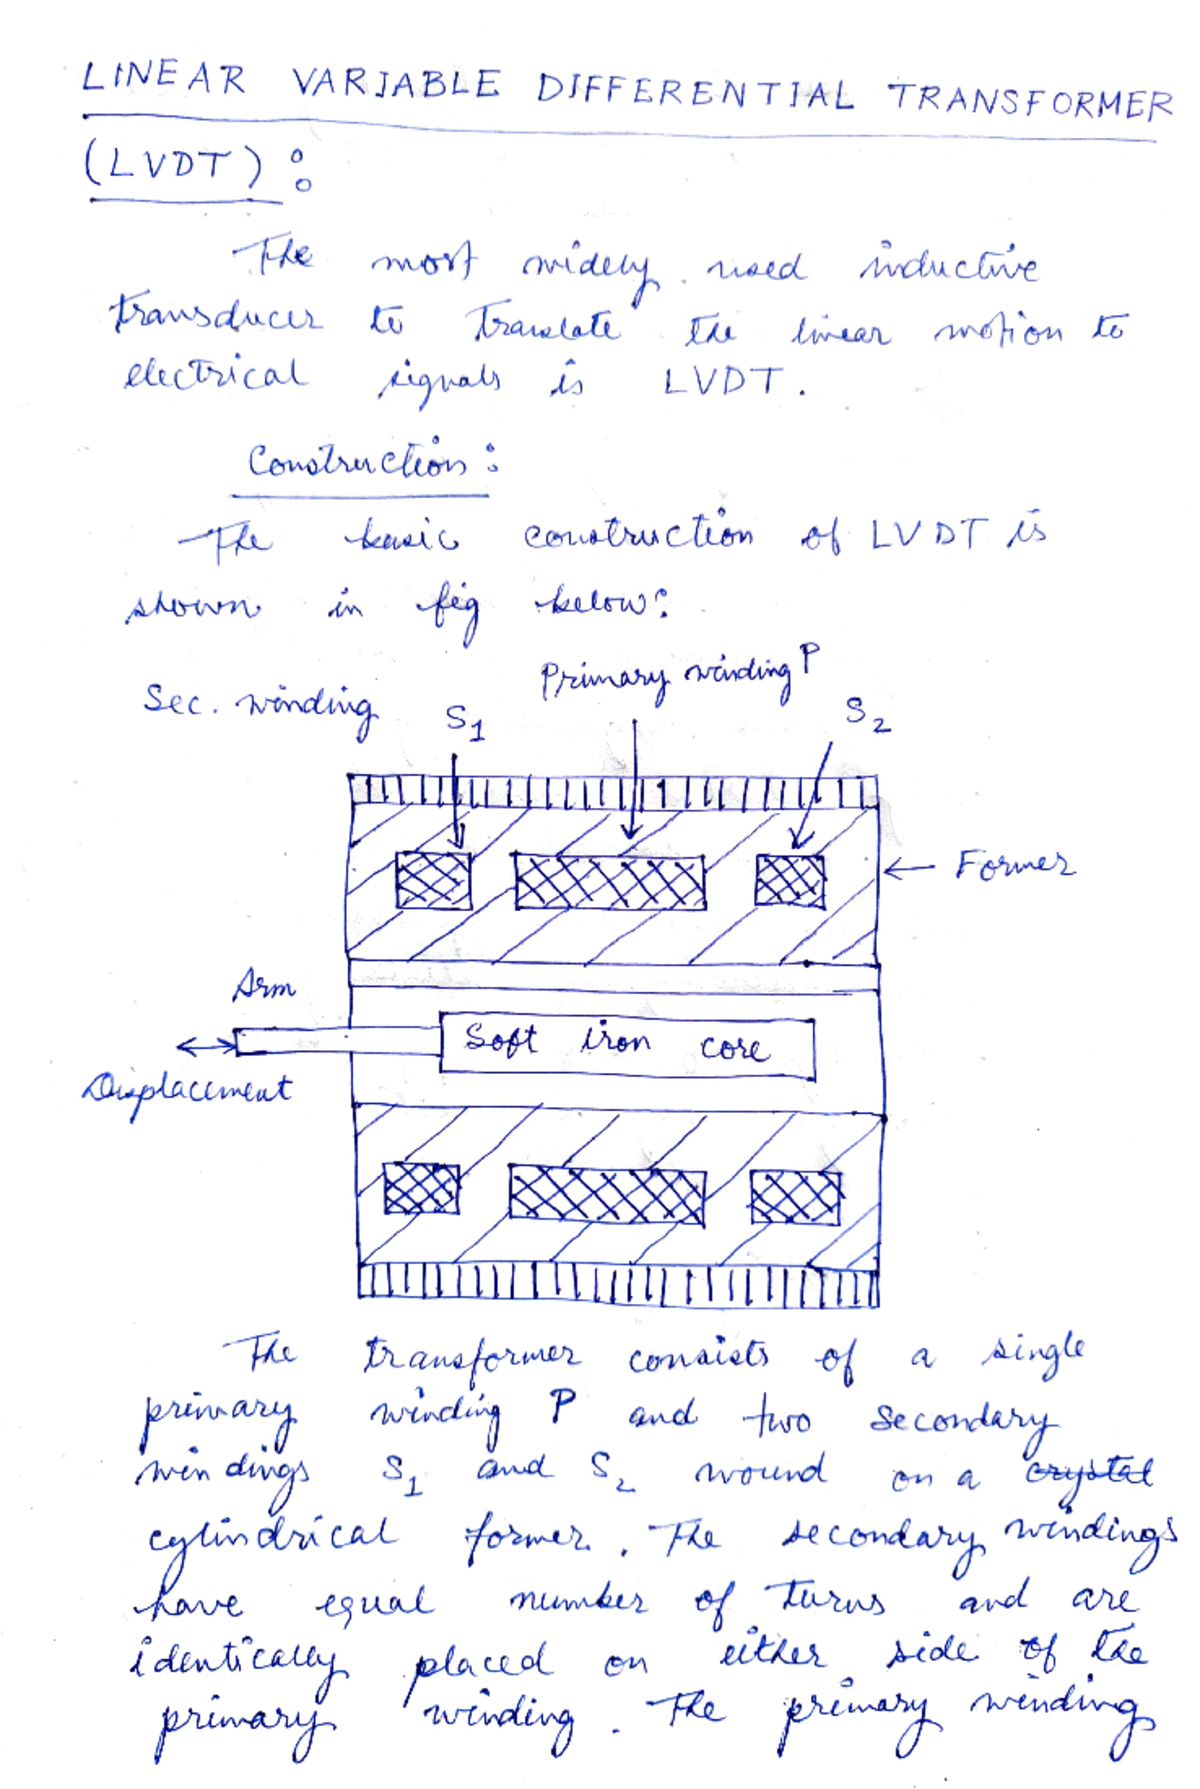 LINEAR VARIABLE DIFFERENTIAL TRANSFORMER
(LVDT) :
The most widely used inductive
transducer to translate the linear motion to
electrical signals is LVDT.
Construction :
The basic construction of LVDT is
shown in fig below:
Primary winding P
Sec. winding S1 S2
Former
Arm
Soft iron core
Displacement
The transformer consists of a single
primary winding P and two secondary
windings S1 and S2 wound on a crystal
cylindrical former. The secondary windings
have equal number of turns and are
identically placed on either side of the
primary winding. The primary winding